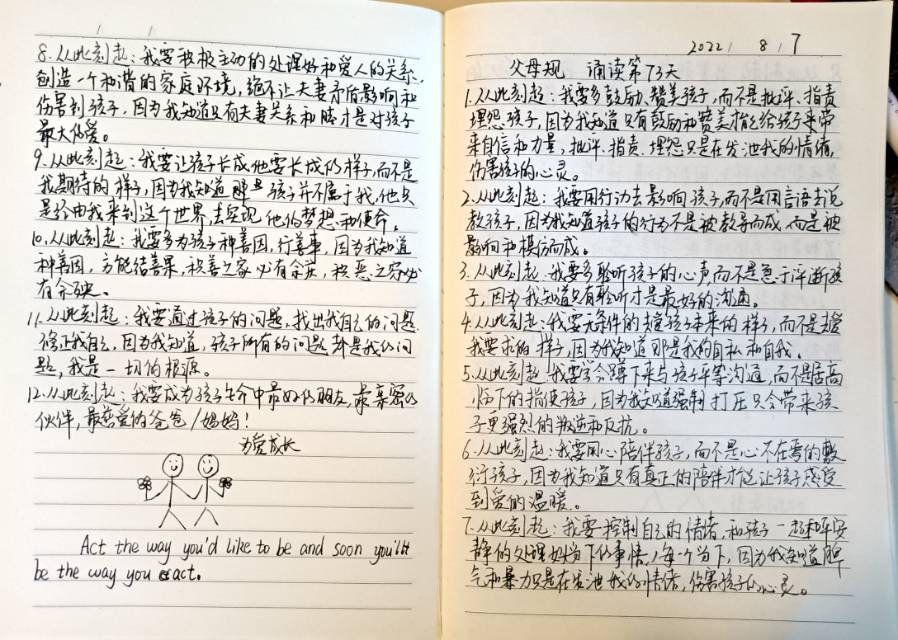 8.从此刻起:我要积极主动的处理好和爱人的关系,
创造一个和谐的家庭环境,绝不让夫妻矛盾影响和
伤害到孩子,因为我知道只有夫妻关系和睦才是对孩子
最大的爱。
9.从此刻起:我要让孩子长成他要长成的样子,而不是
我期待的样子,因为我知道孩子并不属于我,他只
是经由我来到这个世界,去实现他的梦想和使命。
10.从此刻起:我要多为孩子种善因,行善事,因为我知道
种善因,方能结善果,积善之家必有余庆,积恶之家必
有余殃。
11.从此刻起:我要通过孩子的问题,找出我自己的问题
修正我自己,因为我知道,孩子所有的问题都是我的问
题,我是一切的根源。
12.从此刻起:我要成为孩子生命中最好的朋友,最亲密的
伙伴,最慈爱的爸爸/妈妈!
为爱成长
Act the way you'd like to be and soon you'll
be the way you act.
2022/ 8/ 7
父母规 诵读第73天
1.从此刻起:我要多鼓励、赞美孩子,而不是批评、指责
埋怨孩子,因为我知道只有鼓励和赞美才能给孩子带
来自信和力量,批评、指责、埋怨只是在发泄我的情绪,
伤害孩子的心灵。
2.从此刻起:我要用行动去影响孩子,而不是用言语去说
教孩子,因为我知道孩子的行为不是被教导而成,而是被
影响和模仿而成。
3.从此刻起:我要多聆听孩子的心声,而不是急于评断孩
子,因为我知道只有聆听才是最好的沟通。
4.从此刻起:我要无条件的去爱孩子本来的样子,而不是去爱
我要求的样子,因为我知道那是我的自私和自我。
5.从此刻起:我要学会蹲下来与孩子平等沟通,而不是居高
临下的指使孩子,因为我知道强制打压只会带来孩
子更强烈的叛逆和反抗。
6.从此刻起:我要用心陪伴孩子,而不是心不在焉的敷
衍孩子,因为我知道只有真正的陪伴才能让孩子感受
到爱的温暖。
7.从此刻起:我要控制自己的情绪,和孩子一起和平安
静的处理好当下的事情/每一个当下,因为我知道脾
气和暴力只是在发泄我的情绪,伤害孩子的心灵。